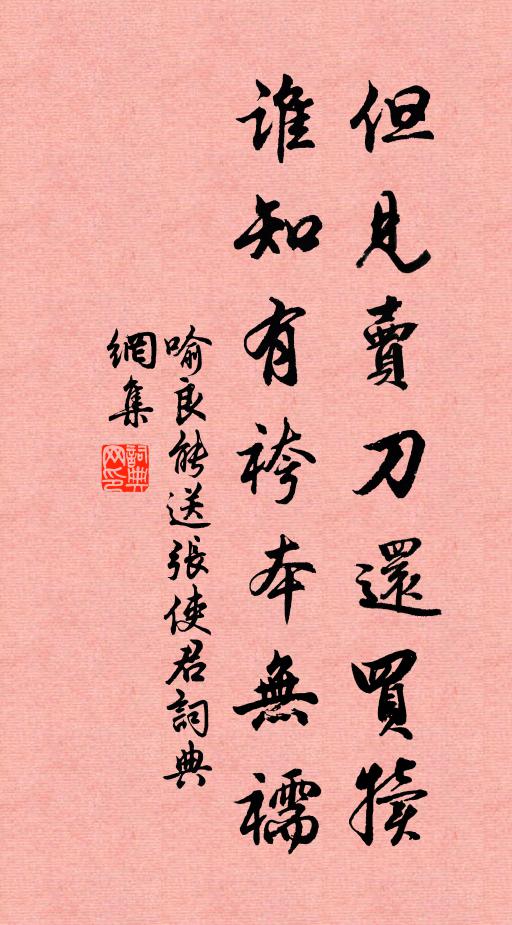 但見賣刀還買犢
誰知有袴本無襦
喻良能送張使君詞典
網集
詞典
网印